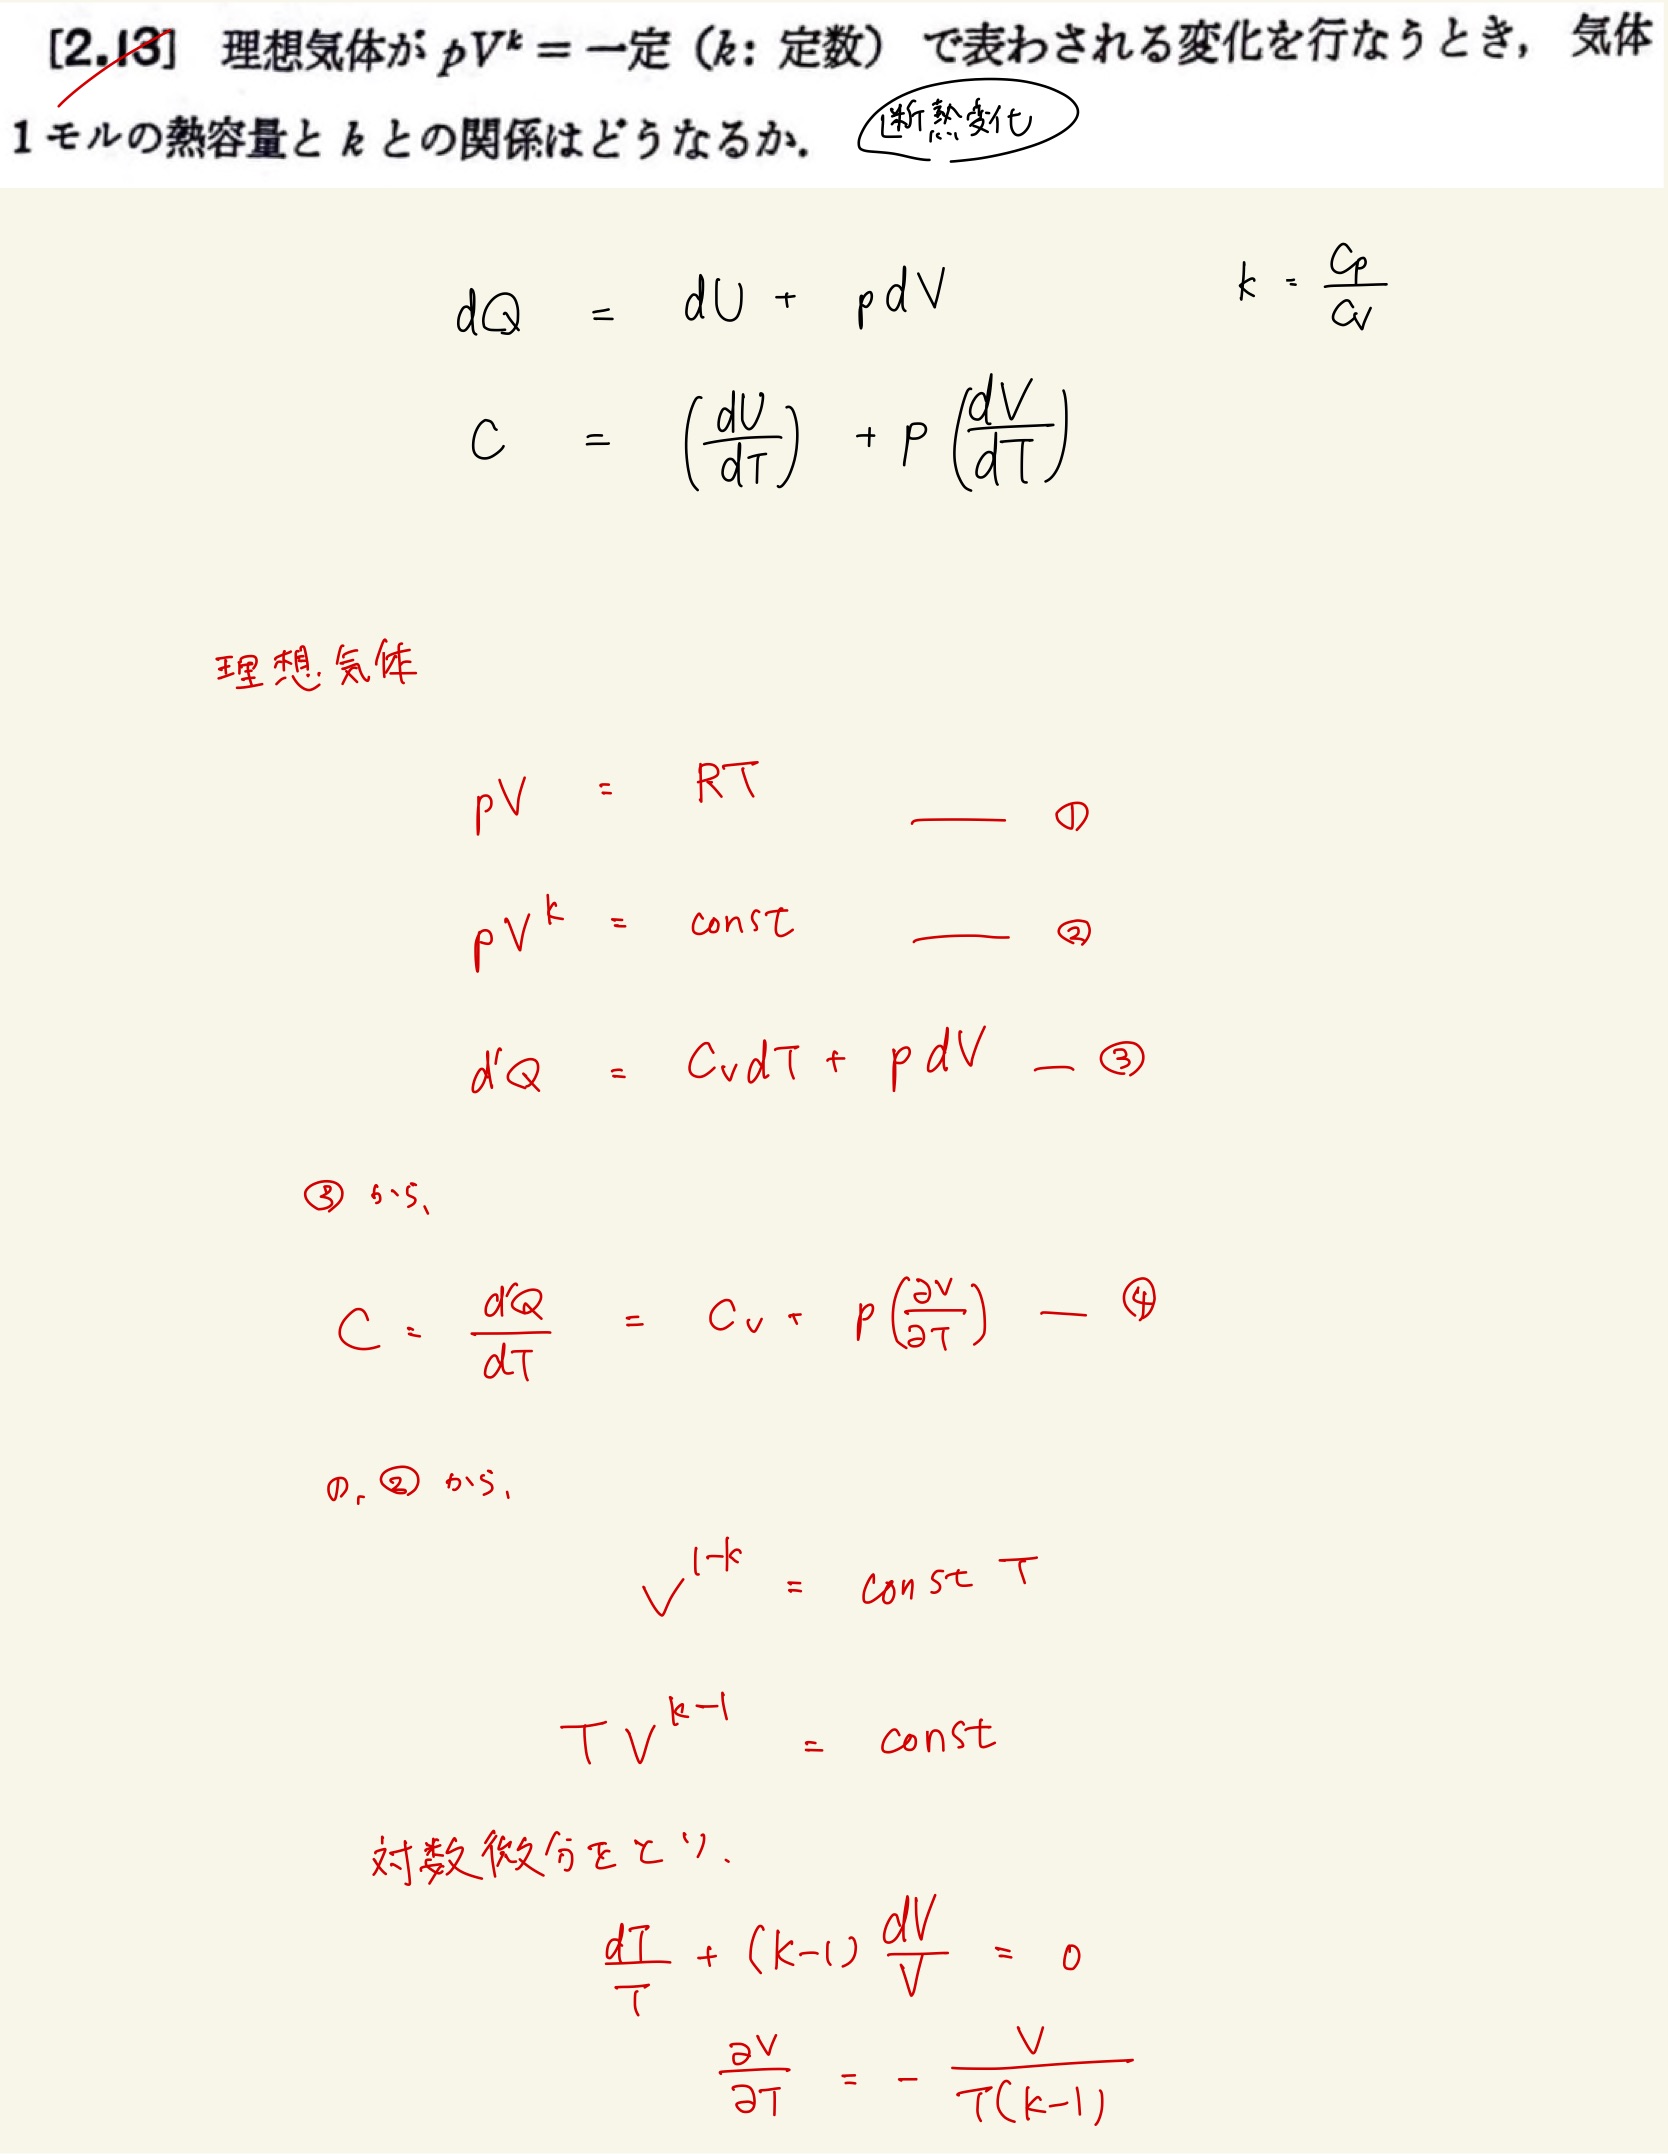 [2.13] 理想気体が pV^k = 一定 (k: 定数) で表わされる変化を行なうとき, 気体
1 モルの熱容量と k との関係はどうなるか.
断熱変化
dQ = dU + pdV
k = Cp/Cv
C = (dU/dT) + p(dV/dT)
理想気体
pV = RT —— ①
pV^k = const —— ②
d'Q = CvdT + pdV — ③
③から、
C = d'Q/dT = Cv + p(∂V/∂T) — ④
①, ②から、
V^(1-k) = const T
TV^(k-1) = const
対数微分をとり、
dT/T + (k-1) dV/V = 0
∂V/∂T = - V/T(k-1)